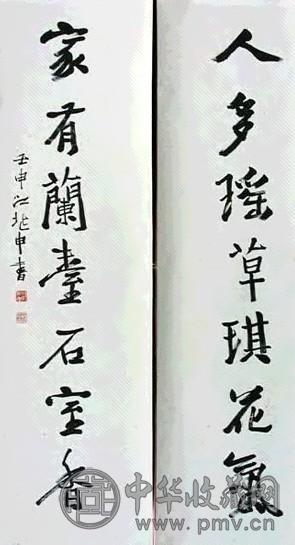 人多瑶草琪花氣
家有蘭臺石室香
壬申江兆申書
中华收藏网
www.pmv.cn